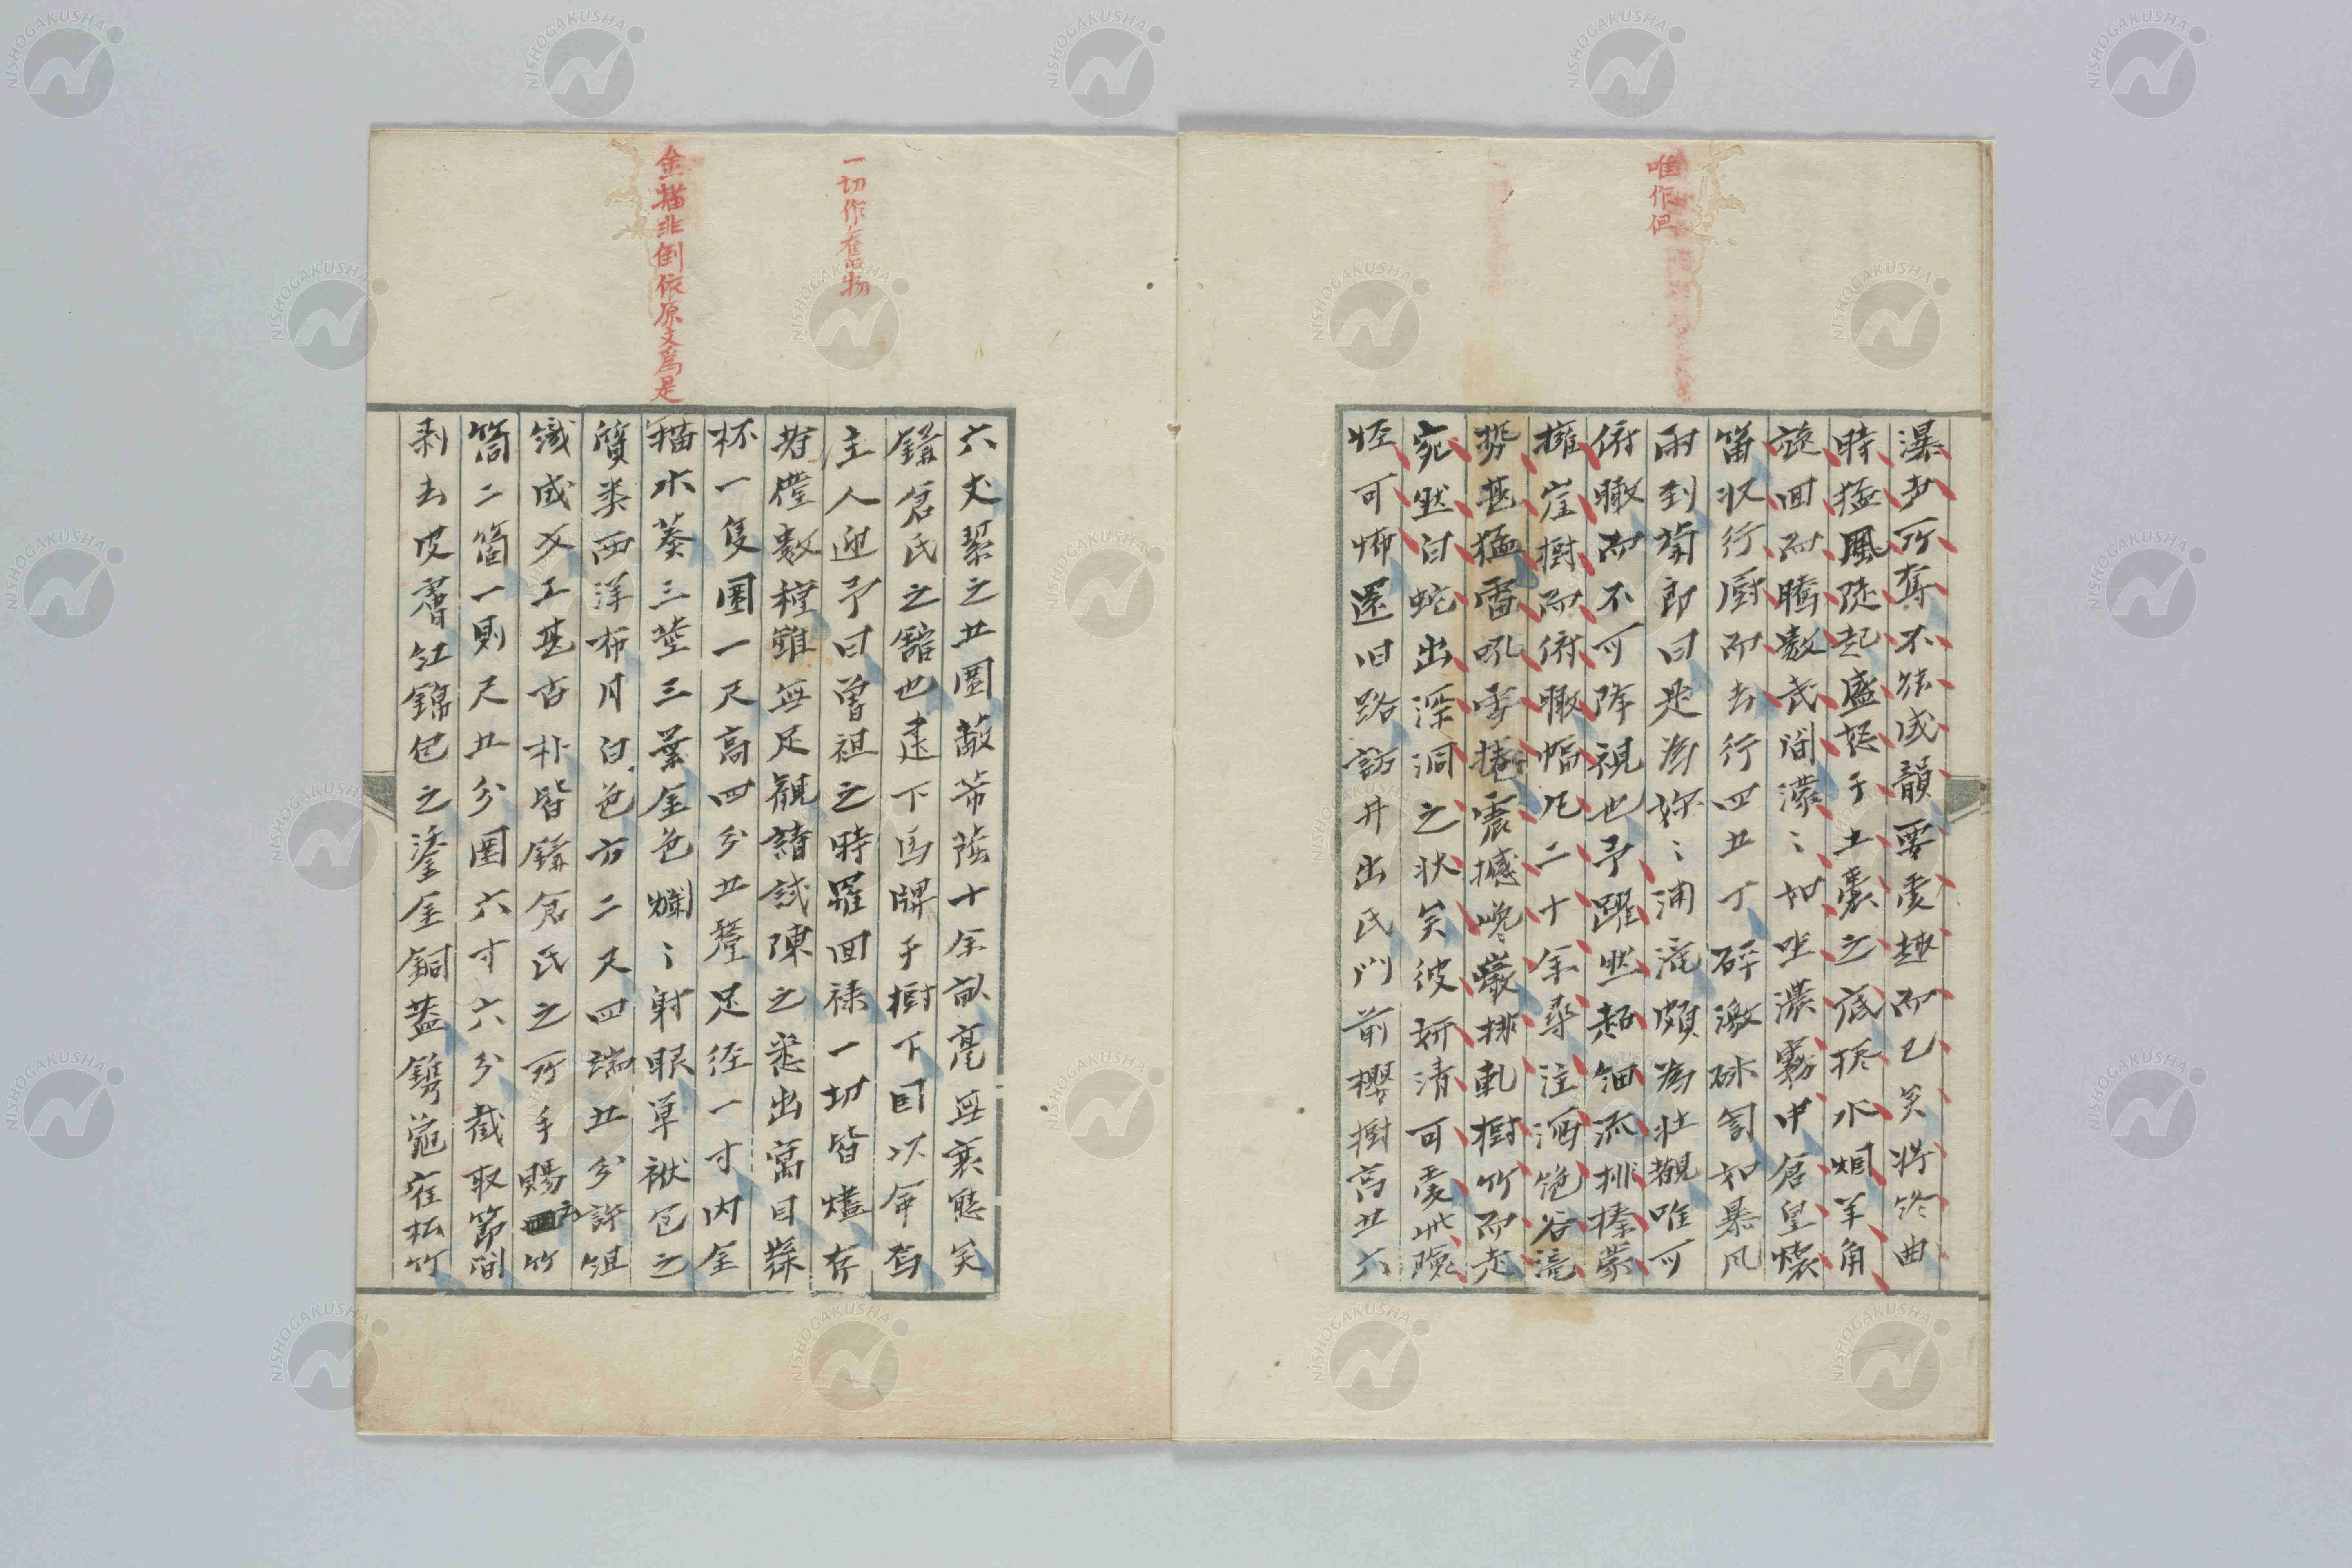 唯作但
瀑声所奪不能成韻要愛趣而已矣将終曲
時猛風陡起盛怒于土囊之底捲水烟羊角
旋回而騰数武間濛〻如坐濃霧中倉皇懐
笛収行厨而去行四五丁砰激砅訇如暴风
雨到菊郎曰是為 〻浦滝頗為壮観唯可
俯瞰而不可降視也予躍然超細流排榛蒙
擁崖樹而俯瞰幅凡二十余尋注洒 谷滝
勢甚猛雷吼雪捲震撼巉巌排軋樹竹而走
宛然白蛇出深洞之状矣彼妍清可愛此険
怪可怖還旧路訪井出氏門前櫻樹高五六
一切作舊物
金描非倒依原文爲是
六丈絜之五圍蔽芾蔭十余畝亮無衰態矣
鎌倉氏之舘也建下馬牌于樹下因以命焉
主人迎予曰曽祖之時罹回禄一切皆燼存
者僅数種雖無足観請試陳之悉出寓目蘂
杯一隻圍一尺高四分五釐足径一寸内金
描水葵三莖三葉金色爛〻射眼单袱包之
質类西洋布月白色方二尺四端五分許組
織成文工甚古朴皆鎌倉氏之所手賜 竹
筒二箇一則尺五分圍六寸六分截取節間
剥去皮膚紅錦包之塗金銅蓋鐫 雀松竹